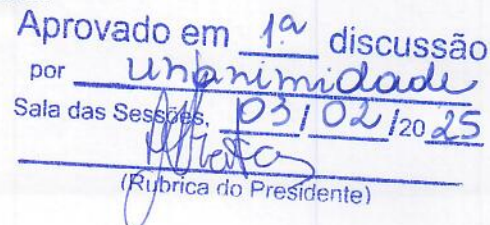 Aprovado em 1ª discussão
por unanimidade
Sala das Sessões, 03/02/2025
(Rubrica do Presidente)